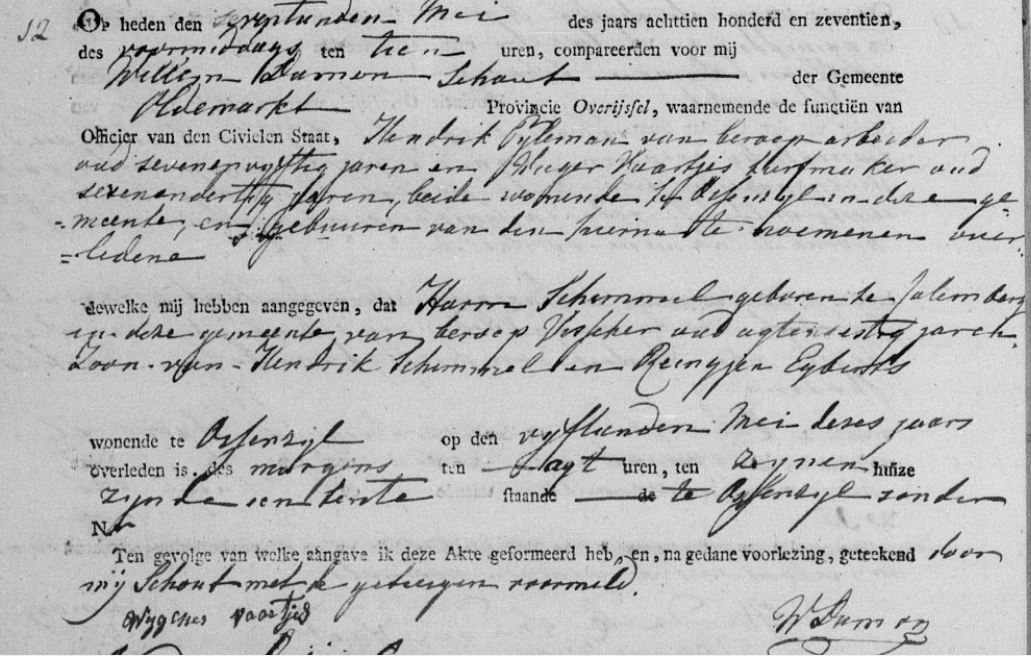 12 Op heden den seventienden Mei des jaars achttien honderd en zeventien,
des voormiddags ten tien uren, compareerden voor mij
Willem Damon Schout der Gemeente
Oldemarkt Provincie Overijssel, waarnemende de functiën van
Officier van den Civielen Staat, Hendrik Pyleman van beroep arbeider
oud sevenenvyftig jaren en Vaartjes turfmaker oud
sevenendertig jaren, beide wonende te Ossenzyl in deze ge
=meente, en gebuuren van den hierna te noemenen over
=ledene
dewelke mij hebben aangegeven, dat Harm Schimmel geboren te Calenberg
in deze gemeente, van beroep Visscher oud agtensestig jaren
Zoon van Hendrik Schimmel en Eyberts
wonende te Ossenzyl op den vyftienden Mei deses jaars
overleden is des morgens ten agt uren, ten zynen huize
zynde een tente staande de te Ossenzyl zonder
No
Ten gevolge van welke aangave ik deze Akte geformeerd heb, en, na gedane voorlezing, geteekend door
mij Schout met de getuigen voormeld.
vaartjes W Damon